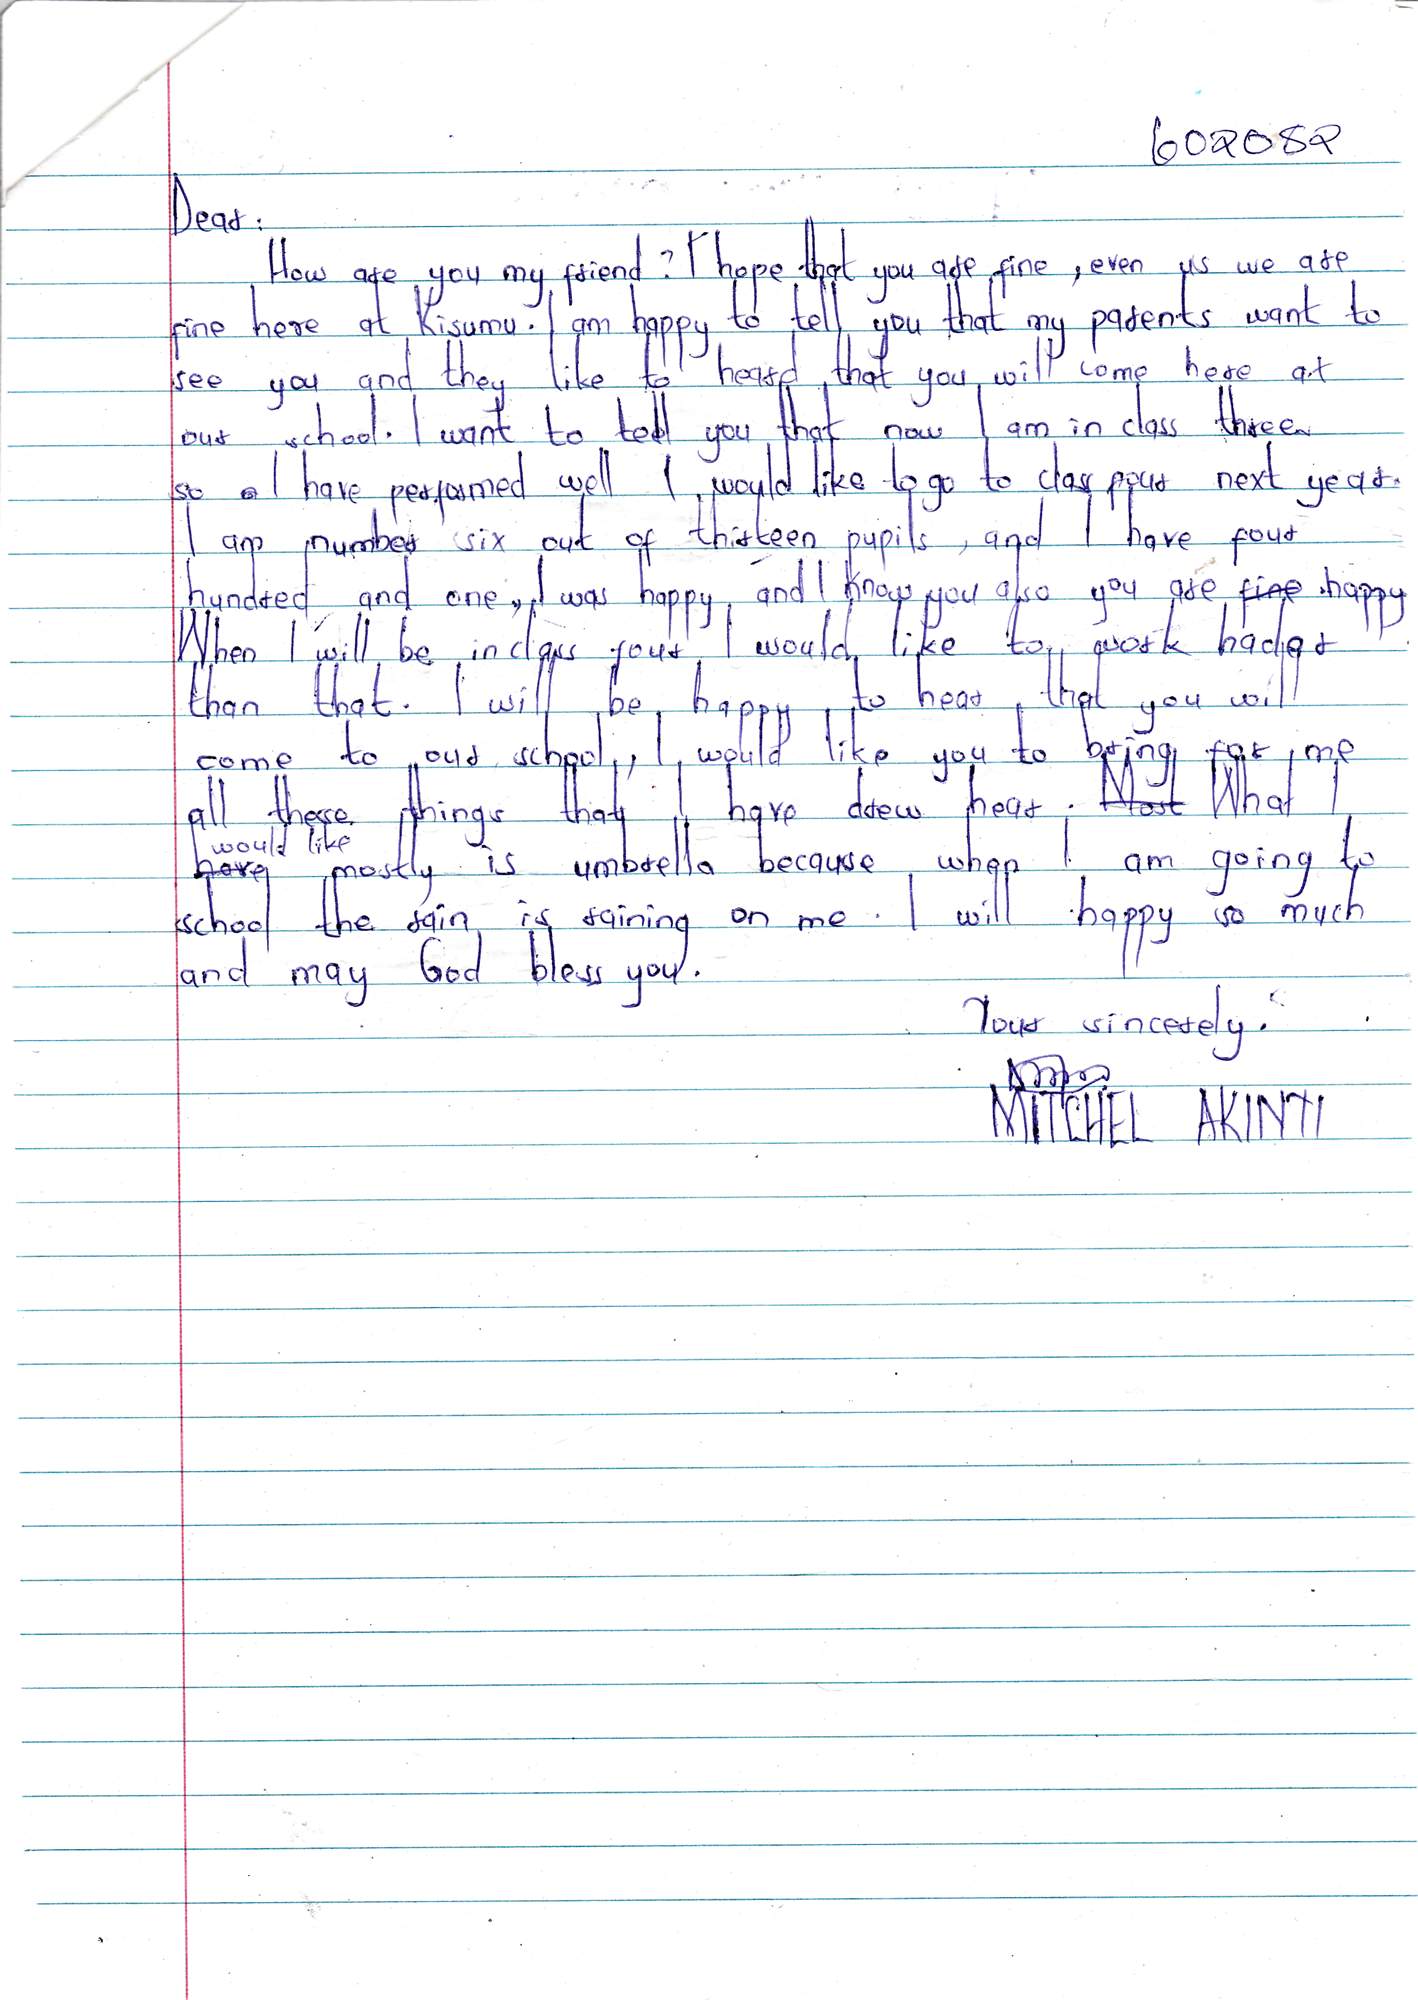 602082
Dear.
How are you my friend? I hope that you are fine, even us we are
fine here at Kisumu. I am happy to tell you that my parents want to
see you and they like to heard that you will come here at
our school. I want to tell you that now I am in class three
so I have performed well I would like to go to class four next year.
I am number six out of thirteen pupils, and I have four
hundred and one, I was happy and I know you also you are fine happy
When I will be in class four I would like to work hader
than that. I will be happy to hear that you will
come to our school, I would like you to bring for me
all these things that I have drew hear. Most What I
would like
have mostly is umbrella because when I am going to
school the rain is raining on me. I will happy so much
and may God bless you.
Your sincerely.
MITCHEL AKINTI